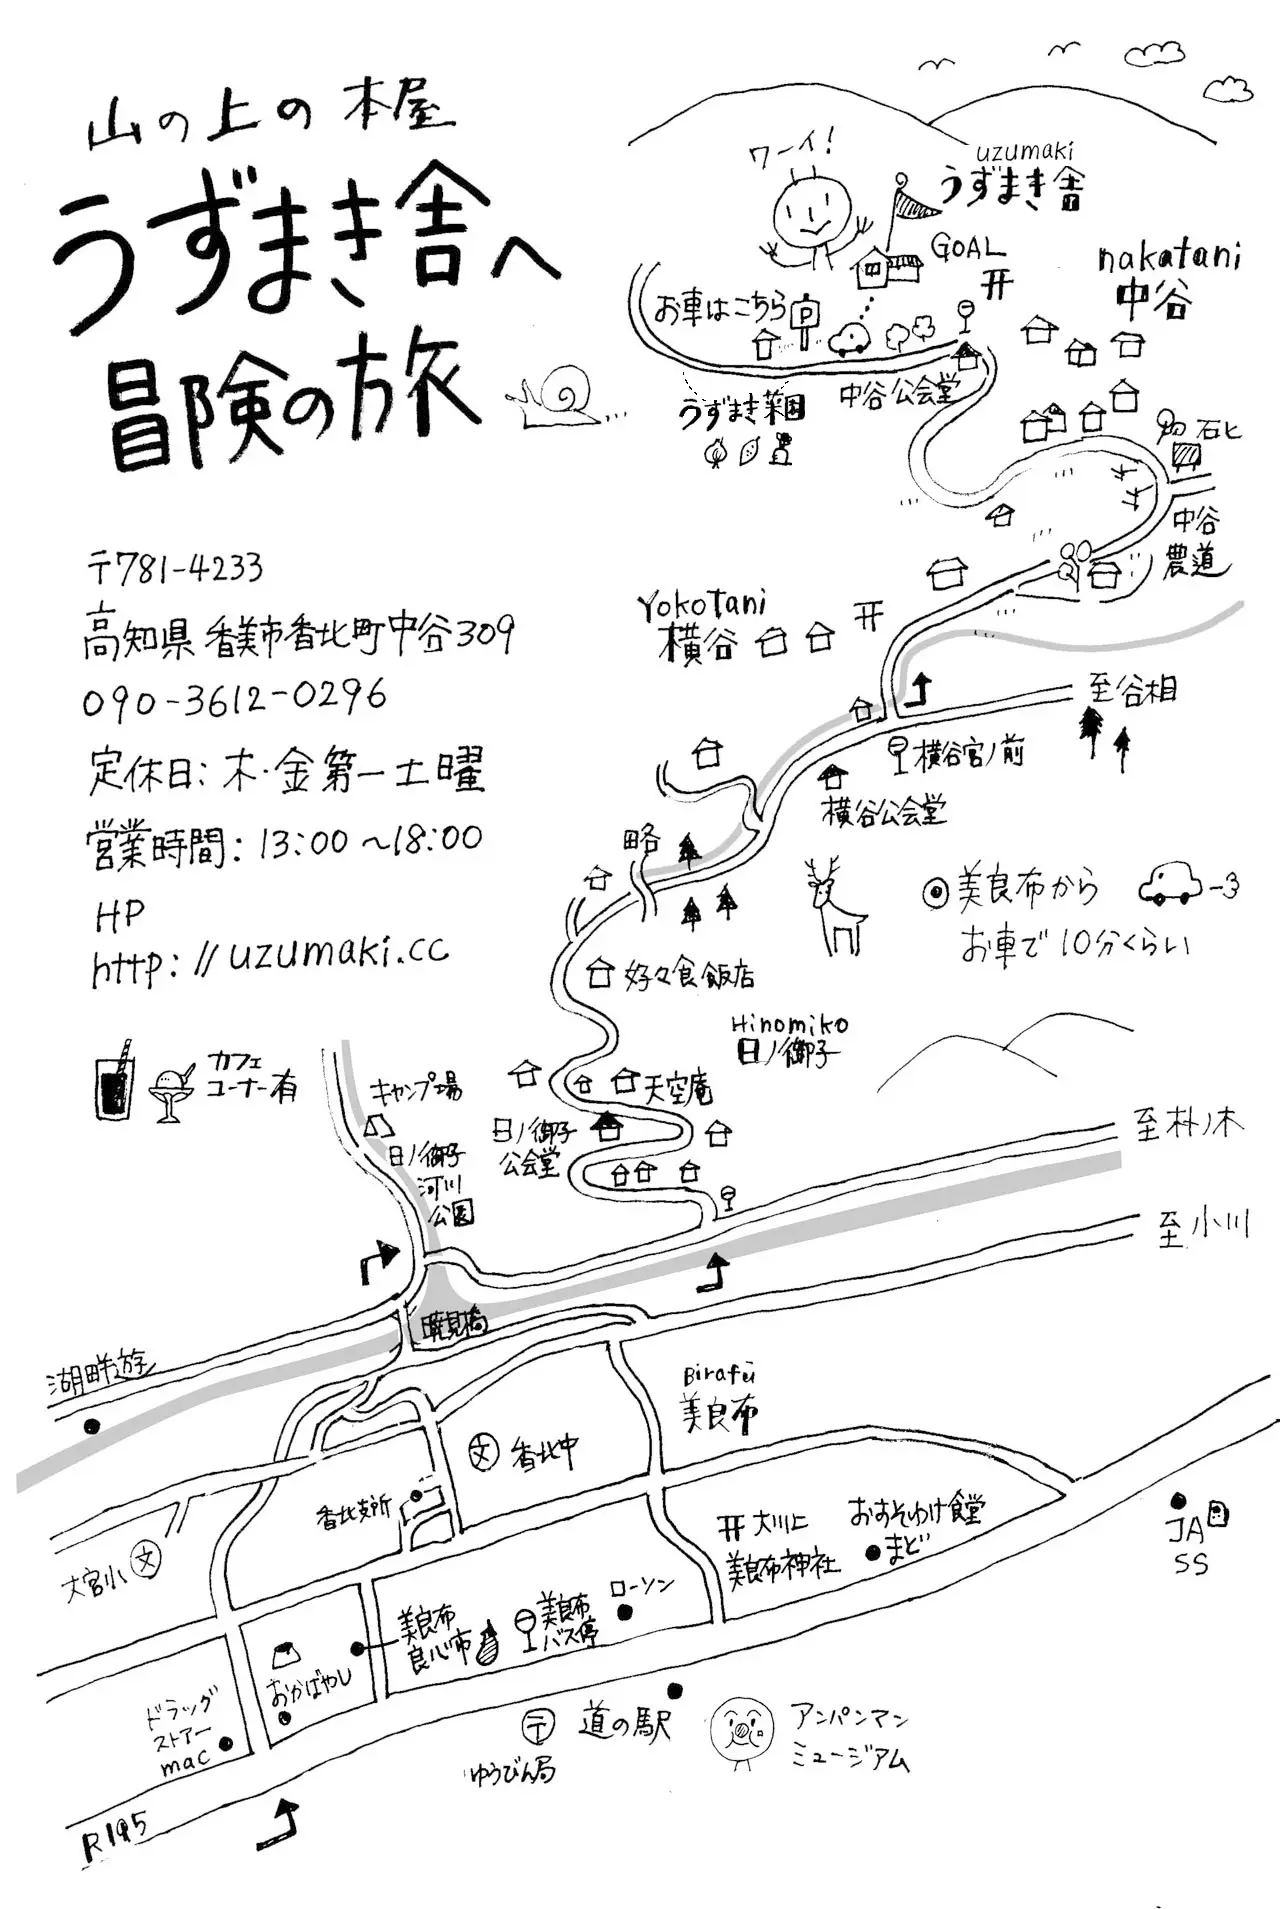 山の上の本屋
うずまき舎へ
冒険の旅
〒781-4233
高知県香美市香北町中谷309
090-3612-0296
定休日：木・金第一土曜
営業時間：13:00～18:00
HP
http://uzumaki.cc
カフェ
コーナー有
ワーイ！
uzumaki
うずまき舎
GOAL
nakatani
中谷
お車はこちら
P
中谷公会堂
うずまき菜園
石ヒ
中谷
農道
YokoTani
横谷
至谷相
横谷宮ノ前
横谷公会堂
略
美良布から
お車で10分くらい
好々食飯店
Hinomiko
日ノ御子
天空庵
キャンプ場
日ノ御子
河川
公園
日ノ御子
公会堂
至朴ノ木
至小川
暁見橋
湖畔遊
Birafu
美良布
文
香北中
香北支所
大宮小
文
大川上
美良布神社
おすそわけ食堂
まど
JA
SS
ローソン
美良布
バス停
美良布
良心市
おかばやし
ドラッグ
ストアー
mac
〒
ゆうびん局
道の駅
アンパンマン
ミュージアム
R195